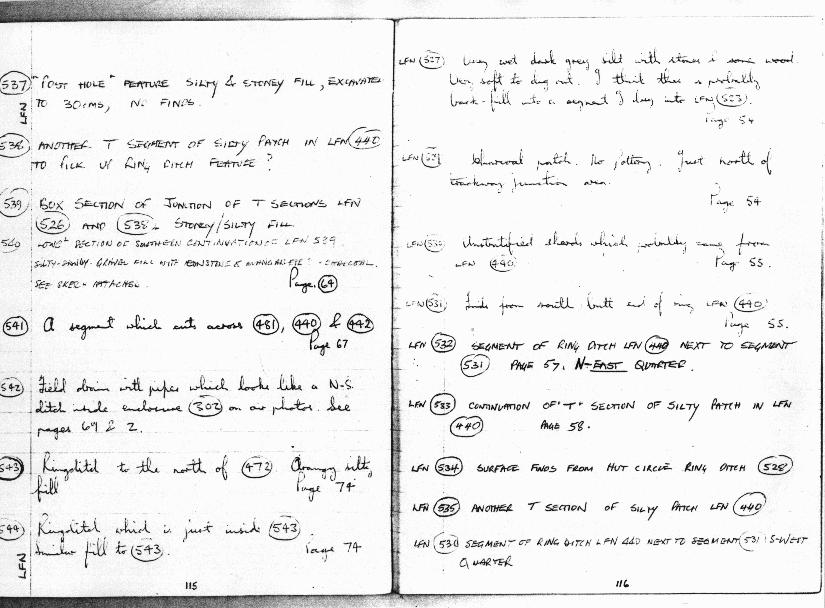 537 "POST HOLE" FEATURE SILTY & STONEY FILL, EXCAVATED
LFN TO 30CMS, NO FINDS.
538 ANOTHER T SEGMENT OF SILTY PATCH IN LFN 440
TO PICK UP RING DITCH FEATURE?
539 BOX SECTION OF JUNCTION OF T SECTIONS LFN
526 AND 538. STONEY/SILTY FILL.
540 SECTION OF SOUTHERN CONTINUATION OF LFN 539.
SILTY-SANDY-GRAVEL FILL WITH IRONSTONE & MANGANESE? - CHARCOAL.
SEE SKETCH ATTACHED. Page. 64
541 A segment which cuts across 481, 440 & 442
Page 67
542 Field drain with pipes which looks like a N-S.
ditch inside enclosure 302 on air photos. See
pages 69 & 2.
543 Ringditch to the north of 472. Orangy silty
fill Page 74
544 Ringditch which is just inside 543
LFN Similar fill to 543. Page 74
115
LFN 527 Very wet dark grey silt with stones & some wood.
Very soft to dig out. I think this is probably
back-fill into a segment I dug into LFN 523.
Page 54
LFN Charcoal patch. No pottery. Just north of
trackway junction area.
Page 54
LFN 530 Unstratified sherds which probably came from
LFN 440. Page 55.
LFN 531 Finds from south butt end of ring LFN 440
Page 55.
LFN 532 SEGMENT OF RING DITCH LFN 440 NEXT TO SEGMENT
531 PAGE 57, N-EAST QUARTER.
LFN 533 CONTINUATION OF "T" SECTION OF SILTY PATCH IN LFN
440 PAGE 58.
LFN 534 SURFACE FINDS FROM HUT CIRCLE RING DITCH 528
LFN 535 ANOTHER T SECTION OF SILTY PATCH LFN 440
LFN 536 SEGMENT OF RING DITCH LFN 440 NEXT TO SEGMENT 531 S-WEST
QUARTER
116